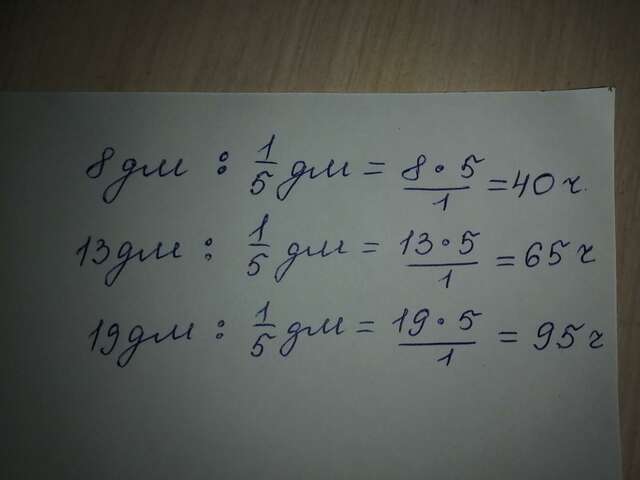 8 дм : 1/5 дм = 8·5/1 = 40 ч.
13 дм : 1/5 дм = 13·5/1 = 65 ч
19 дм : 1/5 дм = 19·5/1 = 95 ч